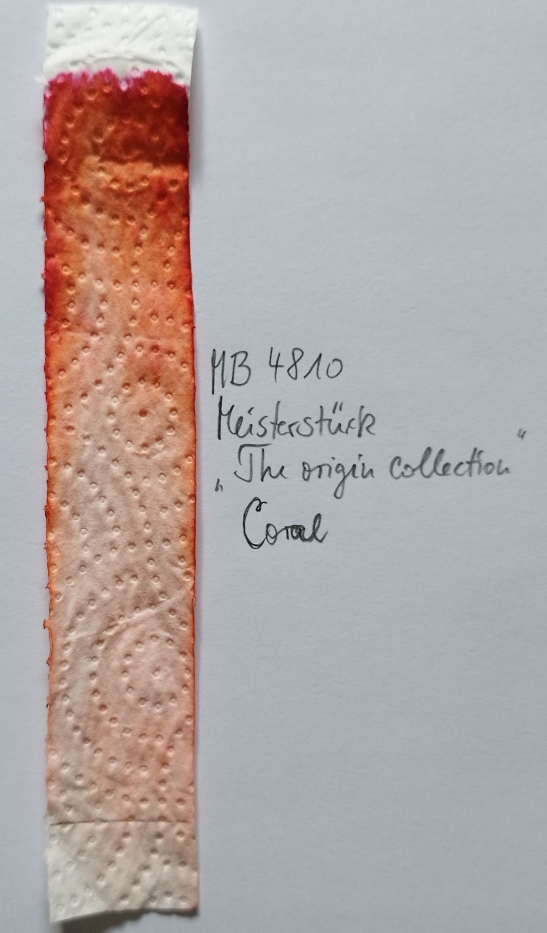 MB 4810
Meisterstück
„The origin collection“
Coral